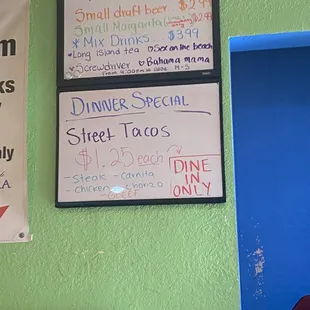 Small draft beer $2.99
Small Margarita $2.99
* Mix Drinks $3.99
Long island tea Sex on the beach
Screwdriver Bahama mama
From 4:00pm to close M-S
m
ks
nly
A
DINNER SPECIAL
Street Tacos
$1.25 each
DINE
IN
ONLY
- Steak - Carnita
- Chicken - Chorizo
- BEEF